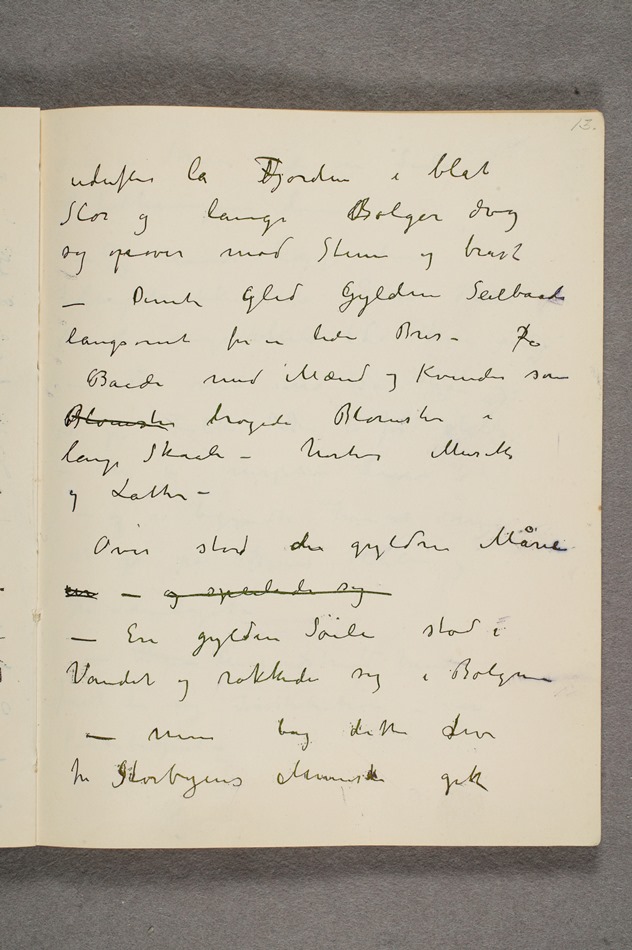 13.
udenfor la Fjorden i blåt
Stor og lange Bølger drog
sig opover mod Stenene og brast
— Denne Gled Gyldne Seilbaade
langsomt for en liden Bris – Fra
Baade med Mænd og Kvinder som
Blomster brogede Blomster i
lange Skaale – hørtes Musik
og Latter –
Over stod den gyldne Måne
en — og speilede sig
— En gylden Söile stod i
Vandet og rokkede sig i Bølgene
— men bag dette Liv
fra Storbyens Mennesker gik